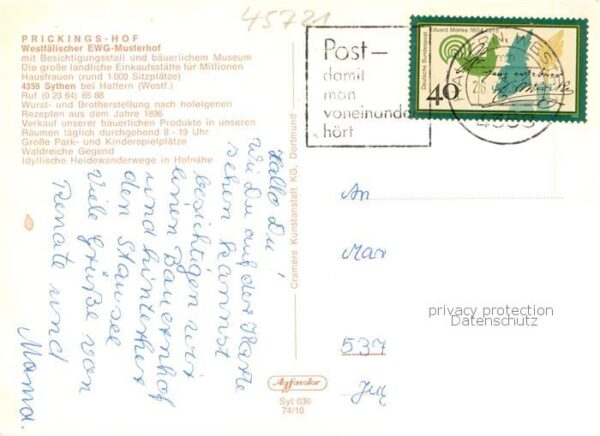 45721
PRICKINGS-HOF
Westfälischer EWG-Musterhof
mit Besichtigungsstall und bäuerlichem Museum
Die große ländliche Einkaufsstätte für Millionen
Hausfrauen (rund 1000 Sitzplätze)
4359 Sythen bei Haltern (Westf.)
Ruf (0 23 64) 65 88
Wurst- und Brotherstellung nach hofeigenen
Rezepten aus dem Jahre 1896
Verkauf unserer bäuerlichen Produkte in unseren
Räumen täglich durchgehend 8 - 19 Uhr
Große Park- und Kinderspielplätze
Waldreiche Gegend
Idyllische Heidewanderwege in Hofnähe
Hallo Du!
Wie Du auf der Karte
sehen kannst
besichtigen wir
einen Bauernhof
und hinterher
den Stausee
Viele Grüße von
Renate und
Mama.
Cramers Kunstanstalt KG, Dortmund
Agfacolor
Syt 036
74/10
Post-
damit
man
voneinander
hört
Eduard Mörike 1804-1875
Deutsche Bundespost
40
An
Mar
537
privacy protection
Datenschutz